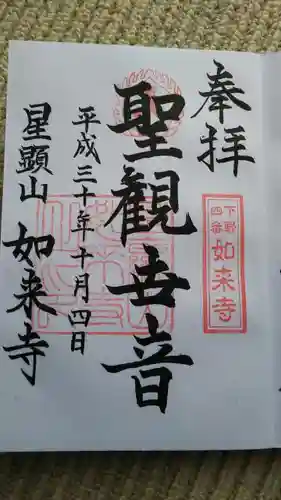 奉拝
下野
四番
如来寺
聖觀世音
平成三十年十月四日
星顕山 如来寺